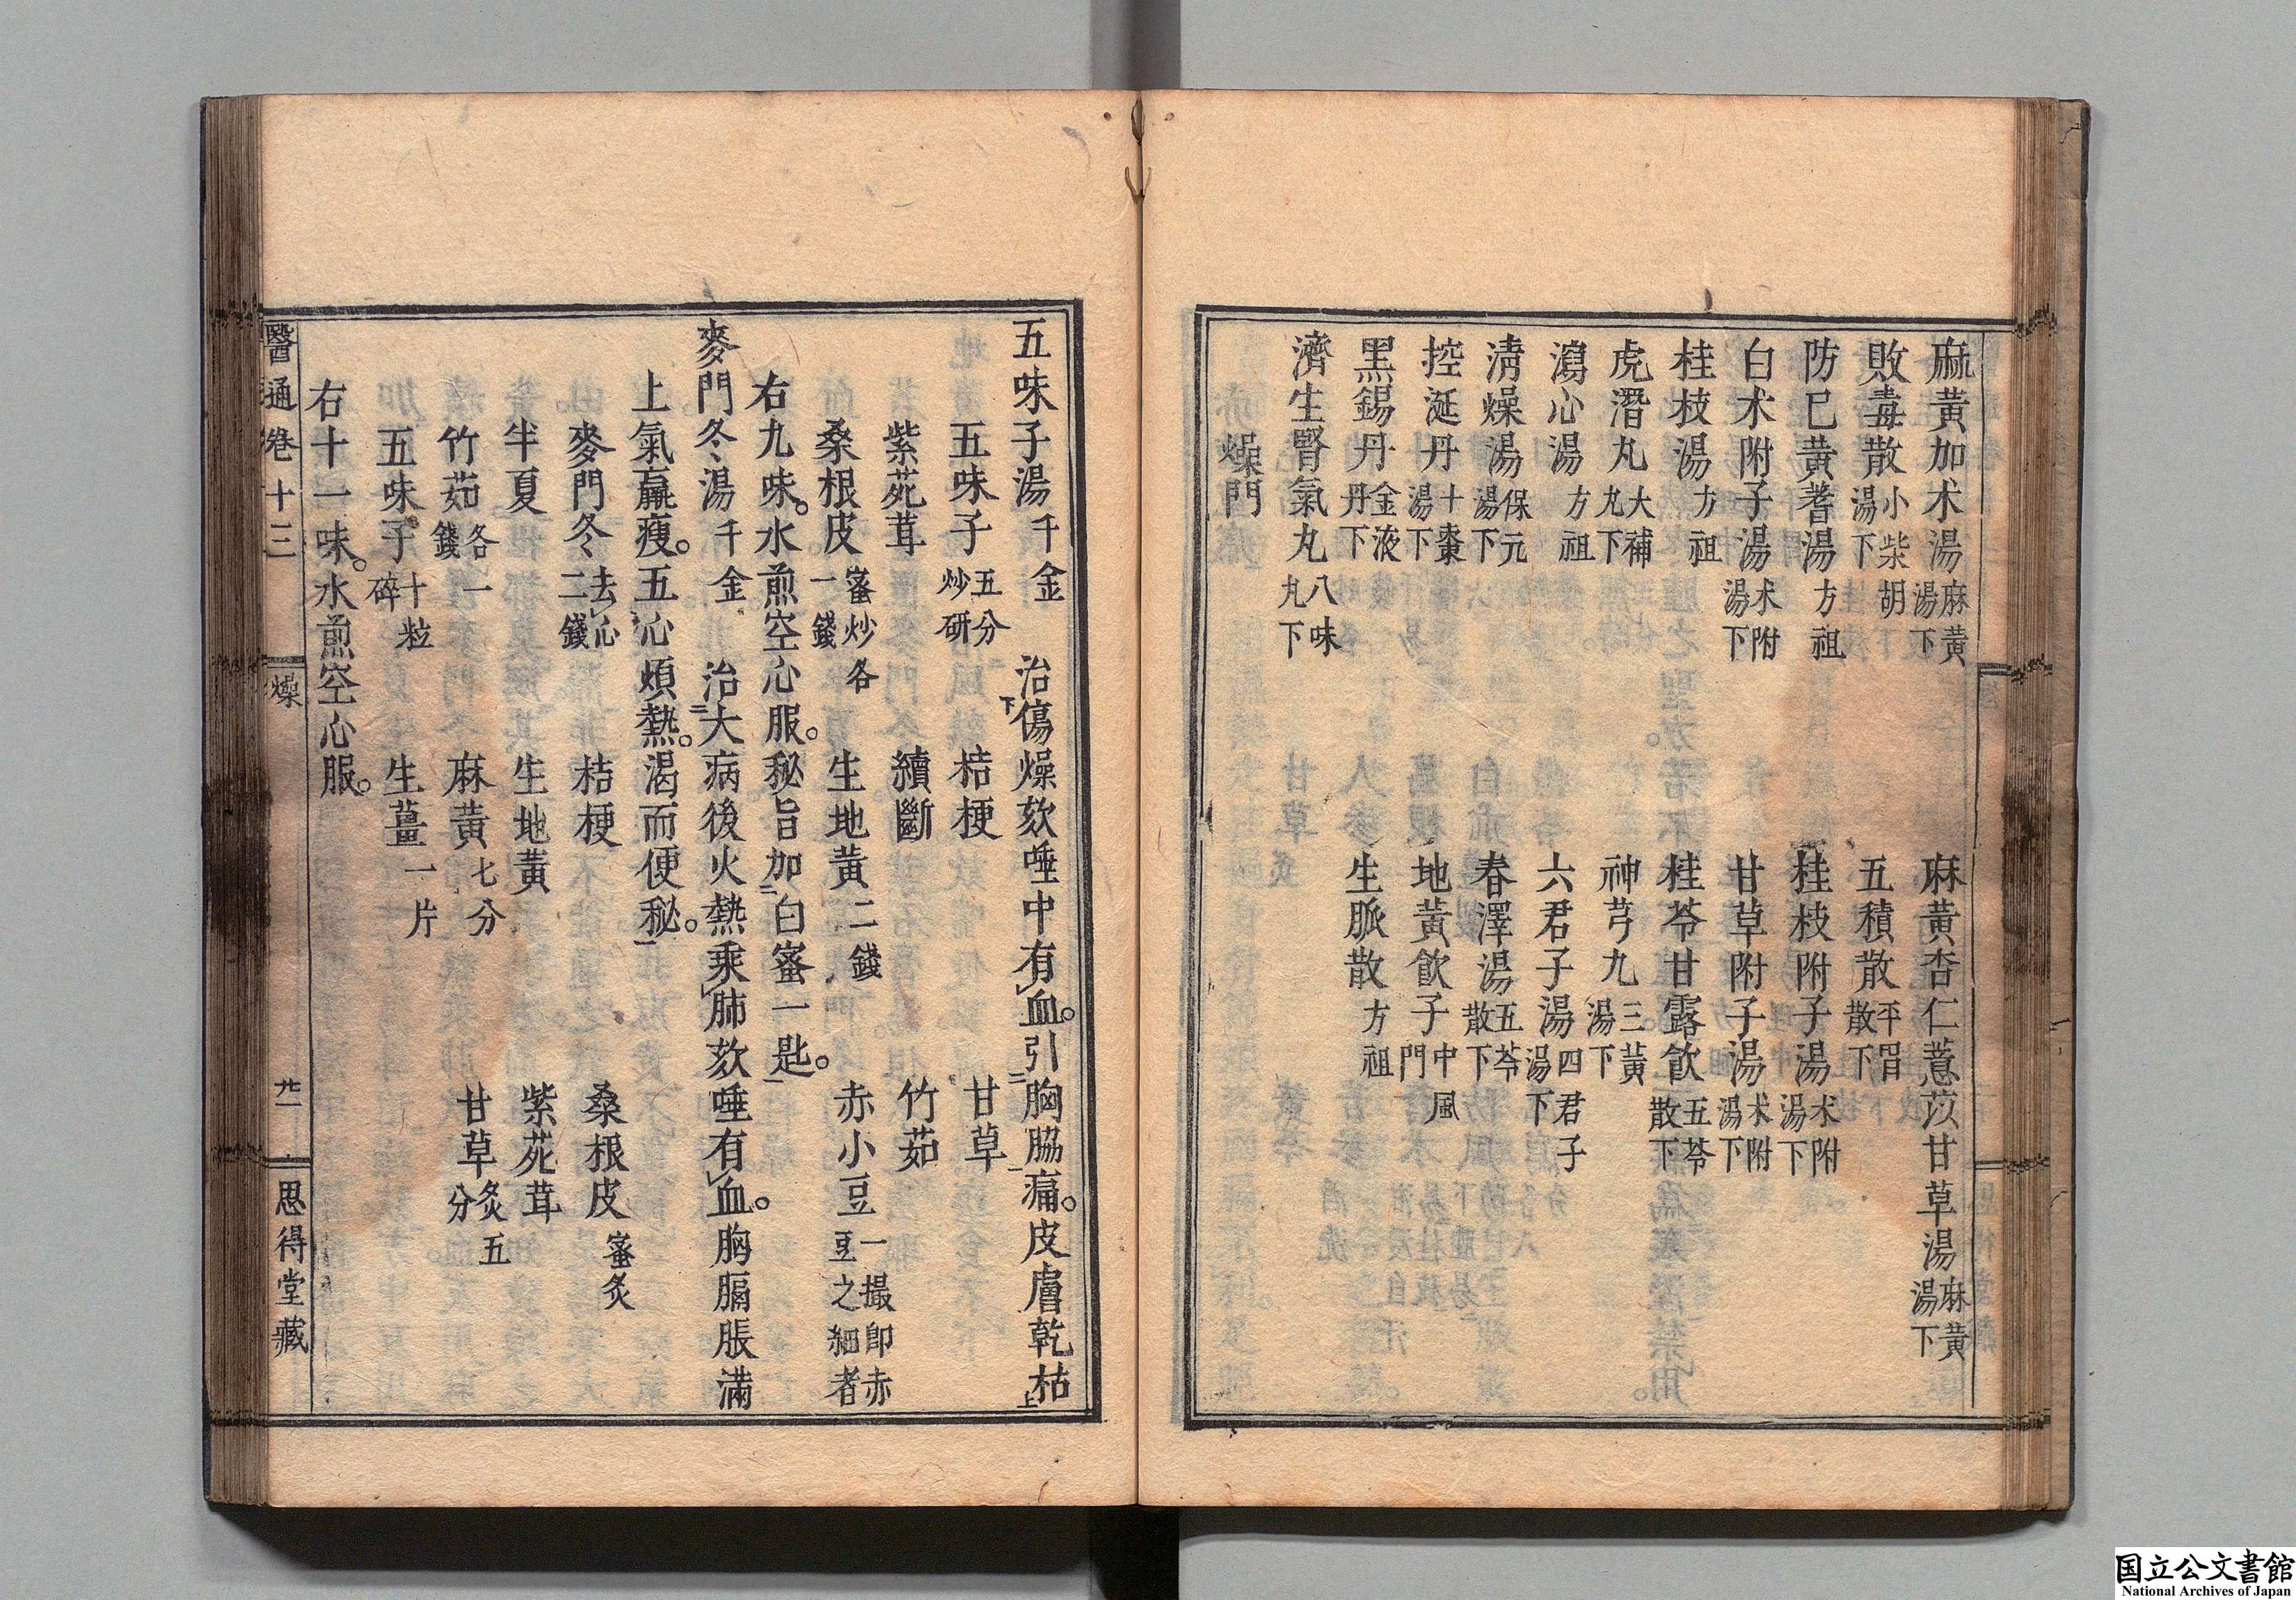 麻黃加朮湯麻黃湯下　麻黃杏仁薏苡甘草湯麻黃湯下
敗毒散小柴胡湯下　五積散平胃散下
防巳黃耆湯方祖　桂枝附子湯朮附湯下
白朮附子湯朮附湯下　甘草附子湯朮附湯下
桂枝湯方祖　桂苓甘露飮五苓散下
虎潛丸大補丸下　神芎丸三黃湯下
瀉心湯方祖　六君子湯四君子湯下
淸燥湯保元湯下　春澤湯五苓散下
控涎丹十棗湯下　地黃飮子中風門
黑錫丹金液丹下　生脈散方祖
濟生腎氣丸八味丸下
燥門
五味子湯千金　治傷燥欬唾中有血。引胸脇痛。皮膚乾枯
五味子五分炒研　桔梗　甘草
紫菀茸　續斷　竹茹
桑根皮蜜炒各一錢　生地黃二錢　赤小豆一撮卽赤豆之細者
右九味。水煎空心服。秘旨加白蜜一匙。
麥門冬湯千金　治大病後火熱乘肺欬唾有血。胸膈脹滿
上氣羸瘦。五心煩熱。渴而便秘。
麥門冬去心二錢　桔梗　桑根皮蜜炙
半夏　生地黃　紫菀茸
竹茹各一錢　麻黃七分　甘草炙五分
五味子十粒碎　生薑一片
右十一味。水煎空心服。
醫通卷十三　燥　廿一　思得堂藏
国立公文書館
National Archives of Japan